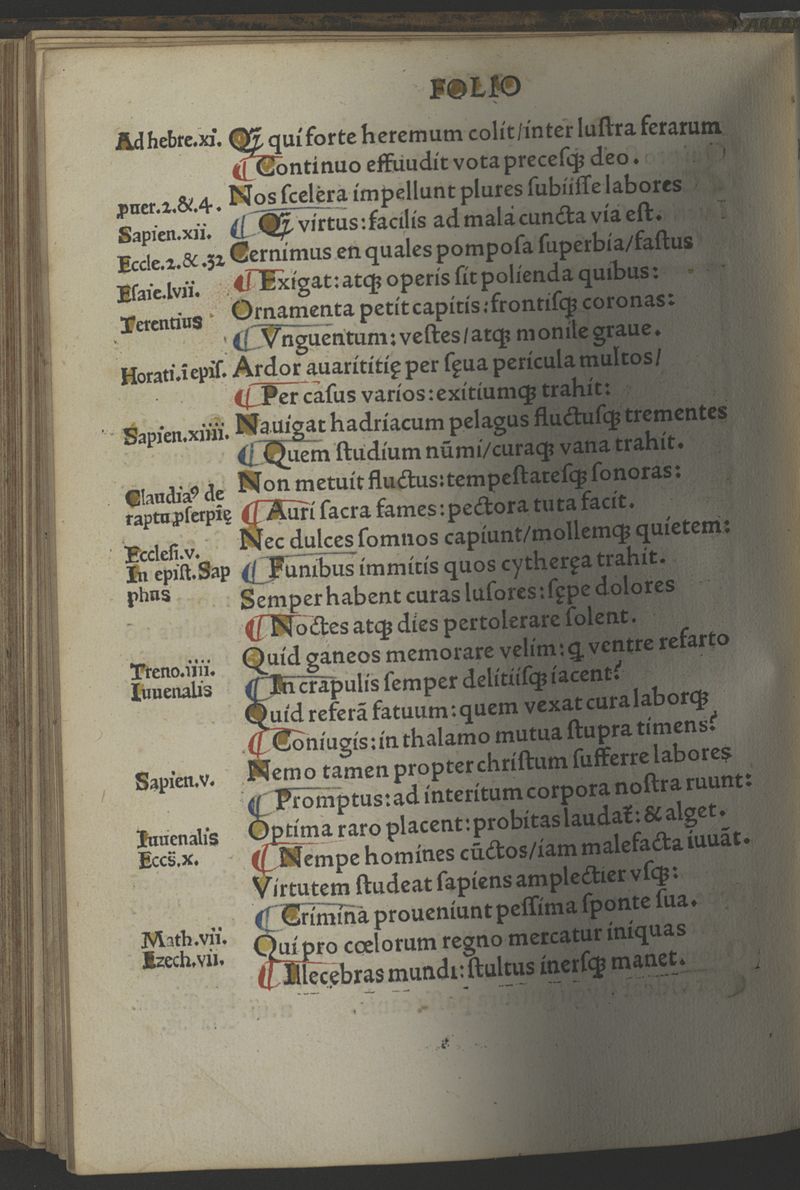 FOLIO
Ad hebre.xi. Qꝫ qui forte heremum colit/inter luſtra ferarum
¶ Continuo effuudit vota preceſqꝫ deo.
Nos ſcelera impellunt plures ſubiiſſe labores
ꝓuer.2.&.4. ¶ Qꝫ virtus:facilis ad mala cuncta via eſt.
Sapien.xii.
Eccle.2.&.32 Cernimus en quales pompoſa ſuperbia/faſtus
¶ Exigat:atqꝫ operis ſit polienda quibus:
Eſaie.lvii.
Ornamenta petit capitis:frontiſqꝫ coronas:
Terentius ¶ Vnguentum:veſtes/atqꝫ monile graue.
Horati.ī epiſ. Ardor auarititię per ſęua pericula multos/
¶ Per caſus varios:exitiumqꝫ trahit:
Sapien.xiiii. Nauigat hadriacum pelagus fluctuſqꝫ trementes
¶ Quem ſtudium nūmi/curaqꝫ vana trahit.
Non metuit fluctus:tempeſtateſqꝫ ſonoras:
Claudiaꝰ de
raptu ꝓſerpię ¶ Auri ſacra fames:pectora tuta facit.
Nec dulces ſomnos capiunt/mollemqꝫ quietem:
Eccleſi.v.
In epiſt.Sap ¶ Funibus immitis quos cytheręa trahit.
phus Semper habent curas luſores:ſępe dolores
¶ Noctes atqꝫ dies pertolerare ſolent.
Quid ganeos memorare velim:q ventre refarto
Treno.iiii.
Iuuenalis ¶ In crapulis ſemper delitiiſqꝫ iacent?
Quid referā fatuum:quem vexat cura laborqꝫ
¶ Coniugis:in thalamo mutua ſtupra timens?
Nemo tamen propter chriſtum ſufferre labores
Sapien.v. ¶ Promptus:ad interitum corpora noſtra ruunt:
Optima raro placent:probitas laudat̄:& alget.
Iuuenalis
Eccs̄.x. ¶ Nempe homines cūctos/iam malefacta iuuāt.
Virtutem ſtudeat ſapiens amplectier vſqꝫ:
¶ Crimina proueniunt peſſima ſponte ſua.
Math.vii. Qui pro cœlorum regno mercatur iniquas
Ezech.vii. ¶ Illecebras mundi:ſtultus inerſqꝫ manet.